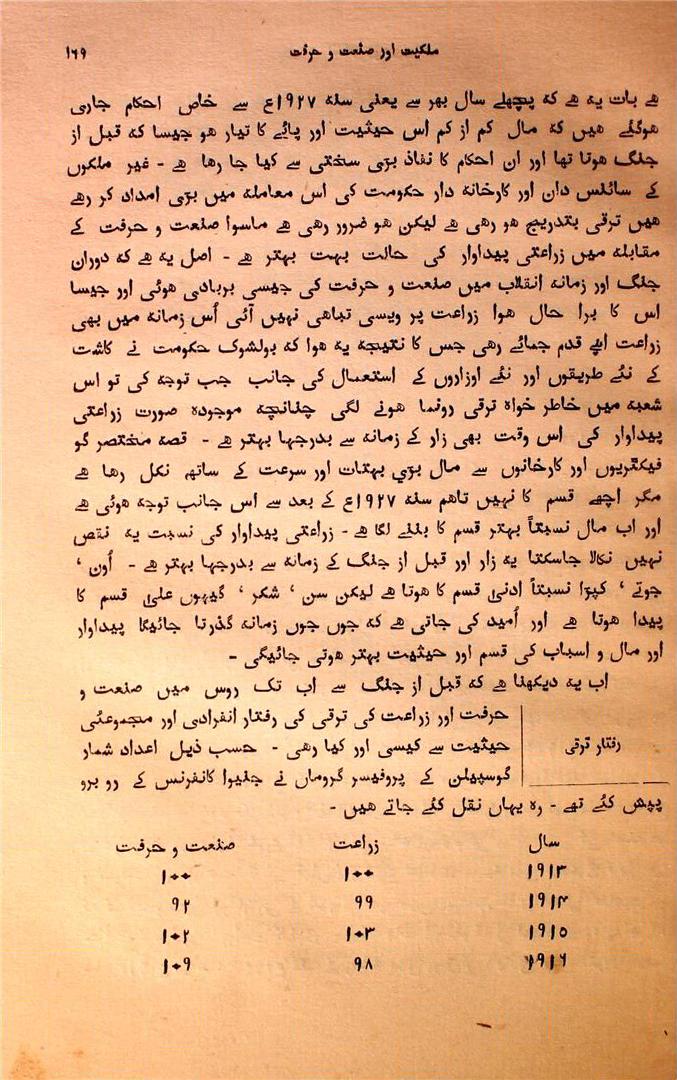 ملکیت اور صنعت و حرفت ۱۶۹
ھے بات یہ ھے کہ پچھلے سال بھر سے یعنی سنہ ۱۹۲۷ع سے خاص احکام جاری
ھوگئے ھیں کہ مال کم از کم اس حیثیت اور پائے کا تیار ھو جیسا کہ قبل از
جنگ ھوتا تھا اور ان احکام کا نفاذ بڑی سختی سے کیا جا رھا ھے - غیر ملکوں
کے سائنس دان اور کارخانہ دار حکومت کی اس معاملہ میں بڑی امداد کر رھے
ھیں ترقی بتدریج ھو رھی ھے لیکن ھو ضرور رھی ھے ماسوا صنعت و حرفت کے
مقابلہ میں زراعتی پیداوار کی حالت بہت بہتر ھے - اصل یہ ھے کہ دوران
جنگ اور زمانہ انقلاب میں صنعت و حرفت کی جیسی بربادی ھوئی اور جیسا
اس کا برا حال ھوا زراعت پر ویسی تباھی نہیں آئی اُس زمانہ میں بھی
زراعت اپنے قدم جمائے رھی جس کا نتیجہ یہ ھوا کہ بولشوک حکومت نے کاشت
کے نئے طریقوں اور نئے اوزاروں کے استعمال کی جانب جب توجہ کی تو اس
شعبہ میں خاطر خواہ ترقی رونما ھونے لگی چنانچہ موجودہ صورت زراعتی
پیداوار کی اس وقت بھی زار کے زمانہ سے بدرجہا بہتر ھے - قصہ مختصر گو
فیکٹریوں اور کارخانوں سے مال بڑی بہتات اور سرعت کے ساتھ نکل رھا ھے
مگر اچھے قسم کا نہیں تاھم سنہ ۱۹۲۷ع کے بعد سے اس جانب توجہ ھوئی ھے
اور اب مال نسبتاً بہتر قسم کا بننے لگا ھے - زراعتی پیداوار کی نسبت یہ نقص
نہیں نکالا جاسکتا یہ زار اور قبل از جنگ کے زمانہ سے بدرجہا بہتر ھے - اُون ‘
جوتے ‘ کپڑا نسبتاً ادنیٰ قسم کا ھوتا ھے لیکن سن ‘ شکر ‘ گیہوں علیٰ قسم کا
پیدا ھوتا ھے اور اُمید کی جاتی ھے کہ جوں جوں زمانہ گذرتا جائیگا پیداوار
اور مال و اسباب کی قسم اور حیثیت بہتر ھوتی جائیگی -
اب یہ دیکھنا ھے کہ قبل از جنگ سے اب تک روس میں صنعت و
حرفت اور زراعت کی ترقی کی رفتار انفرادی اور مجموعئی
رفتار ترقی
حیثیت سے کیسی اور کیا رھی - حسب ذیل اعداد شمار
گوسپیلن کے پروفیسر گروماں نے جنیوا کانفرنس کے رو برو
پیش کئے تھے - وہ یہاں نقل کئے جاتے ھیں -
سال زراعت صنعت و حرفت
۱۹۱۳ ۱۰۰ ۱۰۰
۱۹۱۴ ۹۹ ۹۲
۱۹۱۵ ۱۰۳ ۱۰۲
۱۹۱۶ ۹۸ ۱۰۹